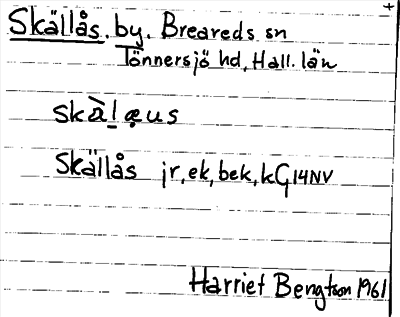 Skällås, by, Breareds sn
Tönnersjö hd, Hall. län
skà̱læ̣us
Skällås jr, ek, bek, kG14NV
Harriet Bengtson 1961